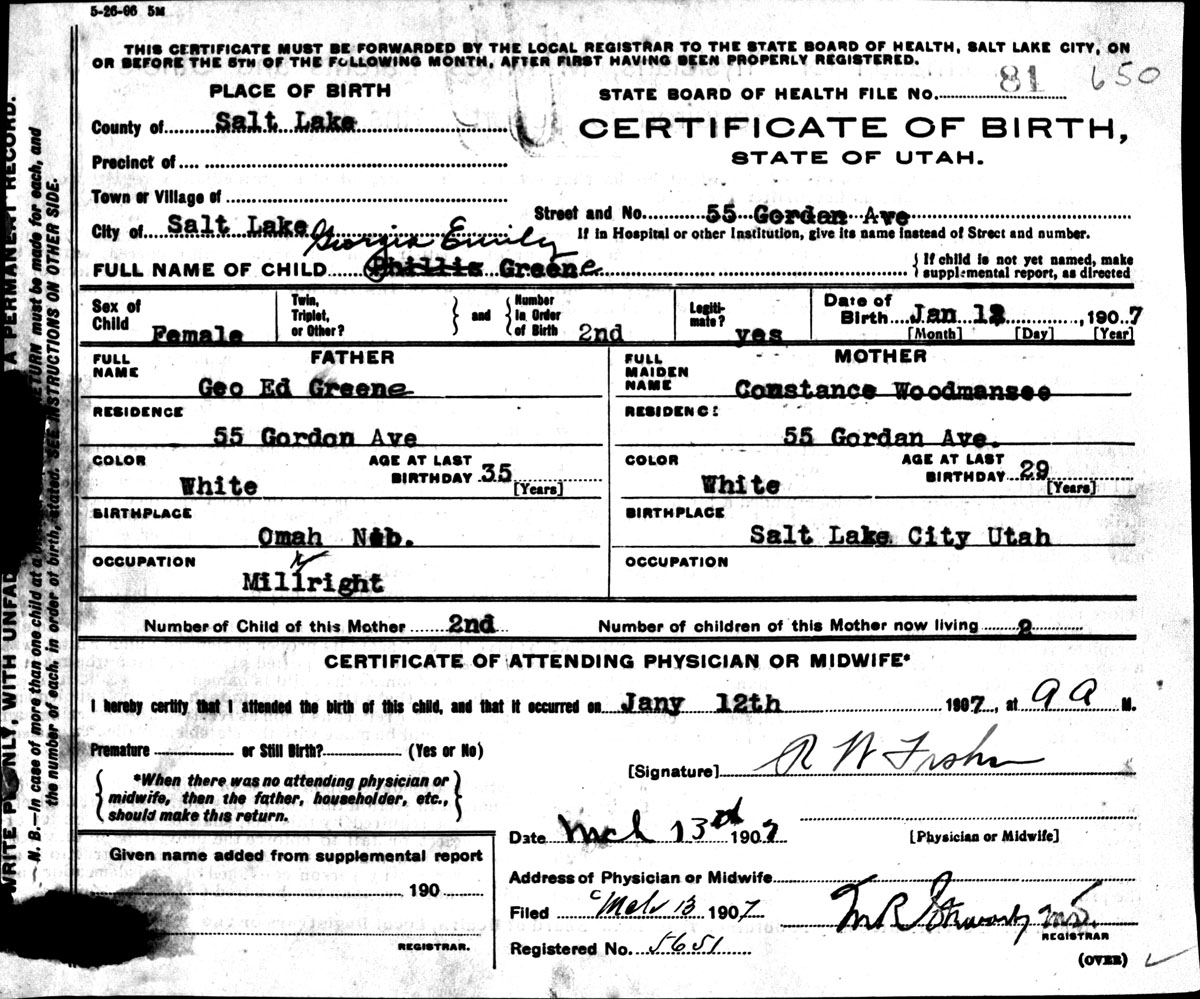 5-26-06 5M
THIS CERTIFICATE MUST BE FORWARDED BY THE LOCAL REGISTRAR TO THE STATE BOARD OF HEALTH, SALT LAKE CITY, ON
OR BEFORE THE 5TH OF THE FOLLOWING MONTH, AFTER FIRST HAVING BEEN PROPERLY REGISTERED.
PLACE OF BIRTH
STATE BOARD OF HEALTH FILE No. 81 650
County of Salt Lake
CERTIFICATE OF BIRTH,
STATE OF UTAH.
Precinct of
Town or Village of
Street and No. 55 Gordan Ave
City of Salt Lake
If in Hospital or other Institution, give its name instead of Street and number.
Georgia Emily
FULL NAME OF CHILD Phillis Greene
{ If child is not yet named, make
supplemental report, as directed
Sex of Child Female
Twin, Triplet, or Other?
and
Number In Order of Birth 2nd
Legiti-mate? yes
Date of Birth Jan 12, 1907
[Month] [Day] [Year]
FATHER
FULL NAME
Geo Ed Greene
RESIDENCE
55 Gordon Ave
COLOR
White
AGE AT LAST BIRTHDAY 35
[Years]
BIRTHPLACE
Omah Neb.
OCCUPATION
Millright
MOTHER
FULL MAIDEN NAME
Constance Woodmansee
RESIDENCE
55 Gordan Ave.
COLOR
White
AGE AT LAST BIRTHDAY 29
[Years]
BIRTHPLACE
Salt Lake City Utah
OCCUPATION
Number of Child of this Mother 2nd
Number of children of this Mother now living 2
CERTIFICATE OF ATTENDING PHYSICIAN OR MIDWIFE*
I hereby certify that I attended the birth of this child, and that it occurred on Jany 12th 1907, at 9 a M.
Premature or Still Birth? (Yes or No)
[Signature] R W Fisher
*When there was no attending physician or
midwife, then the father, householder, etc.,
should make this return.
Date Mch 13th 1907
[Physician or Midwife]
Given name added from supplemental report
190
REGISTRAR.
Address of Physician or Midwife
Filed Mch 13 1907
M R Stewart MD.
REGISTRAR
Registered No. 5651
(OVER)
A PERMANENT RECORD.
WITH UNFAD
N. B.—In case of more than one child at a
RETURN must be made for each, and
the number of each, in order of birth, stated. SEE INSTRUCTIONS ON OTHER SIDE.